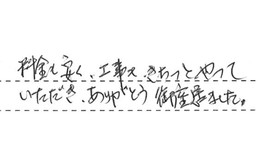 料金も安く、工事もきちっとやって
いただき、ありがとう御座居ました。